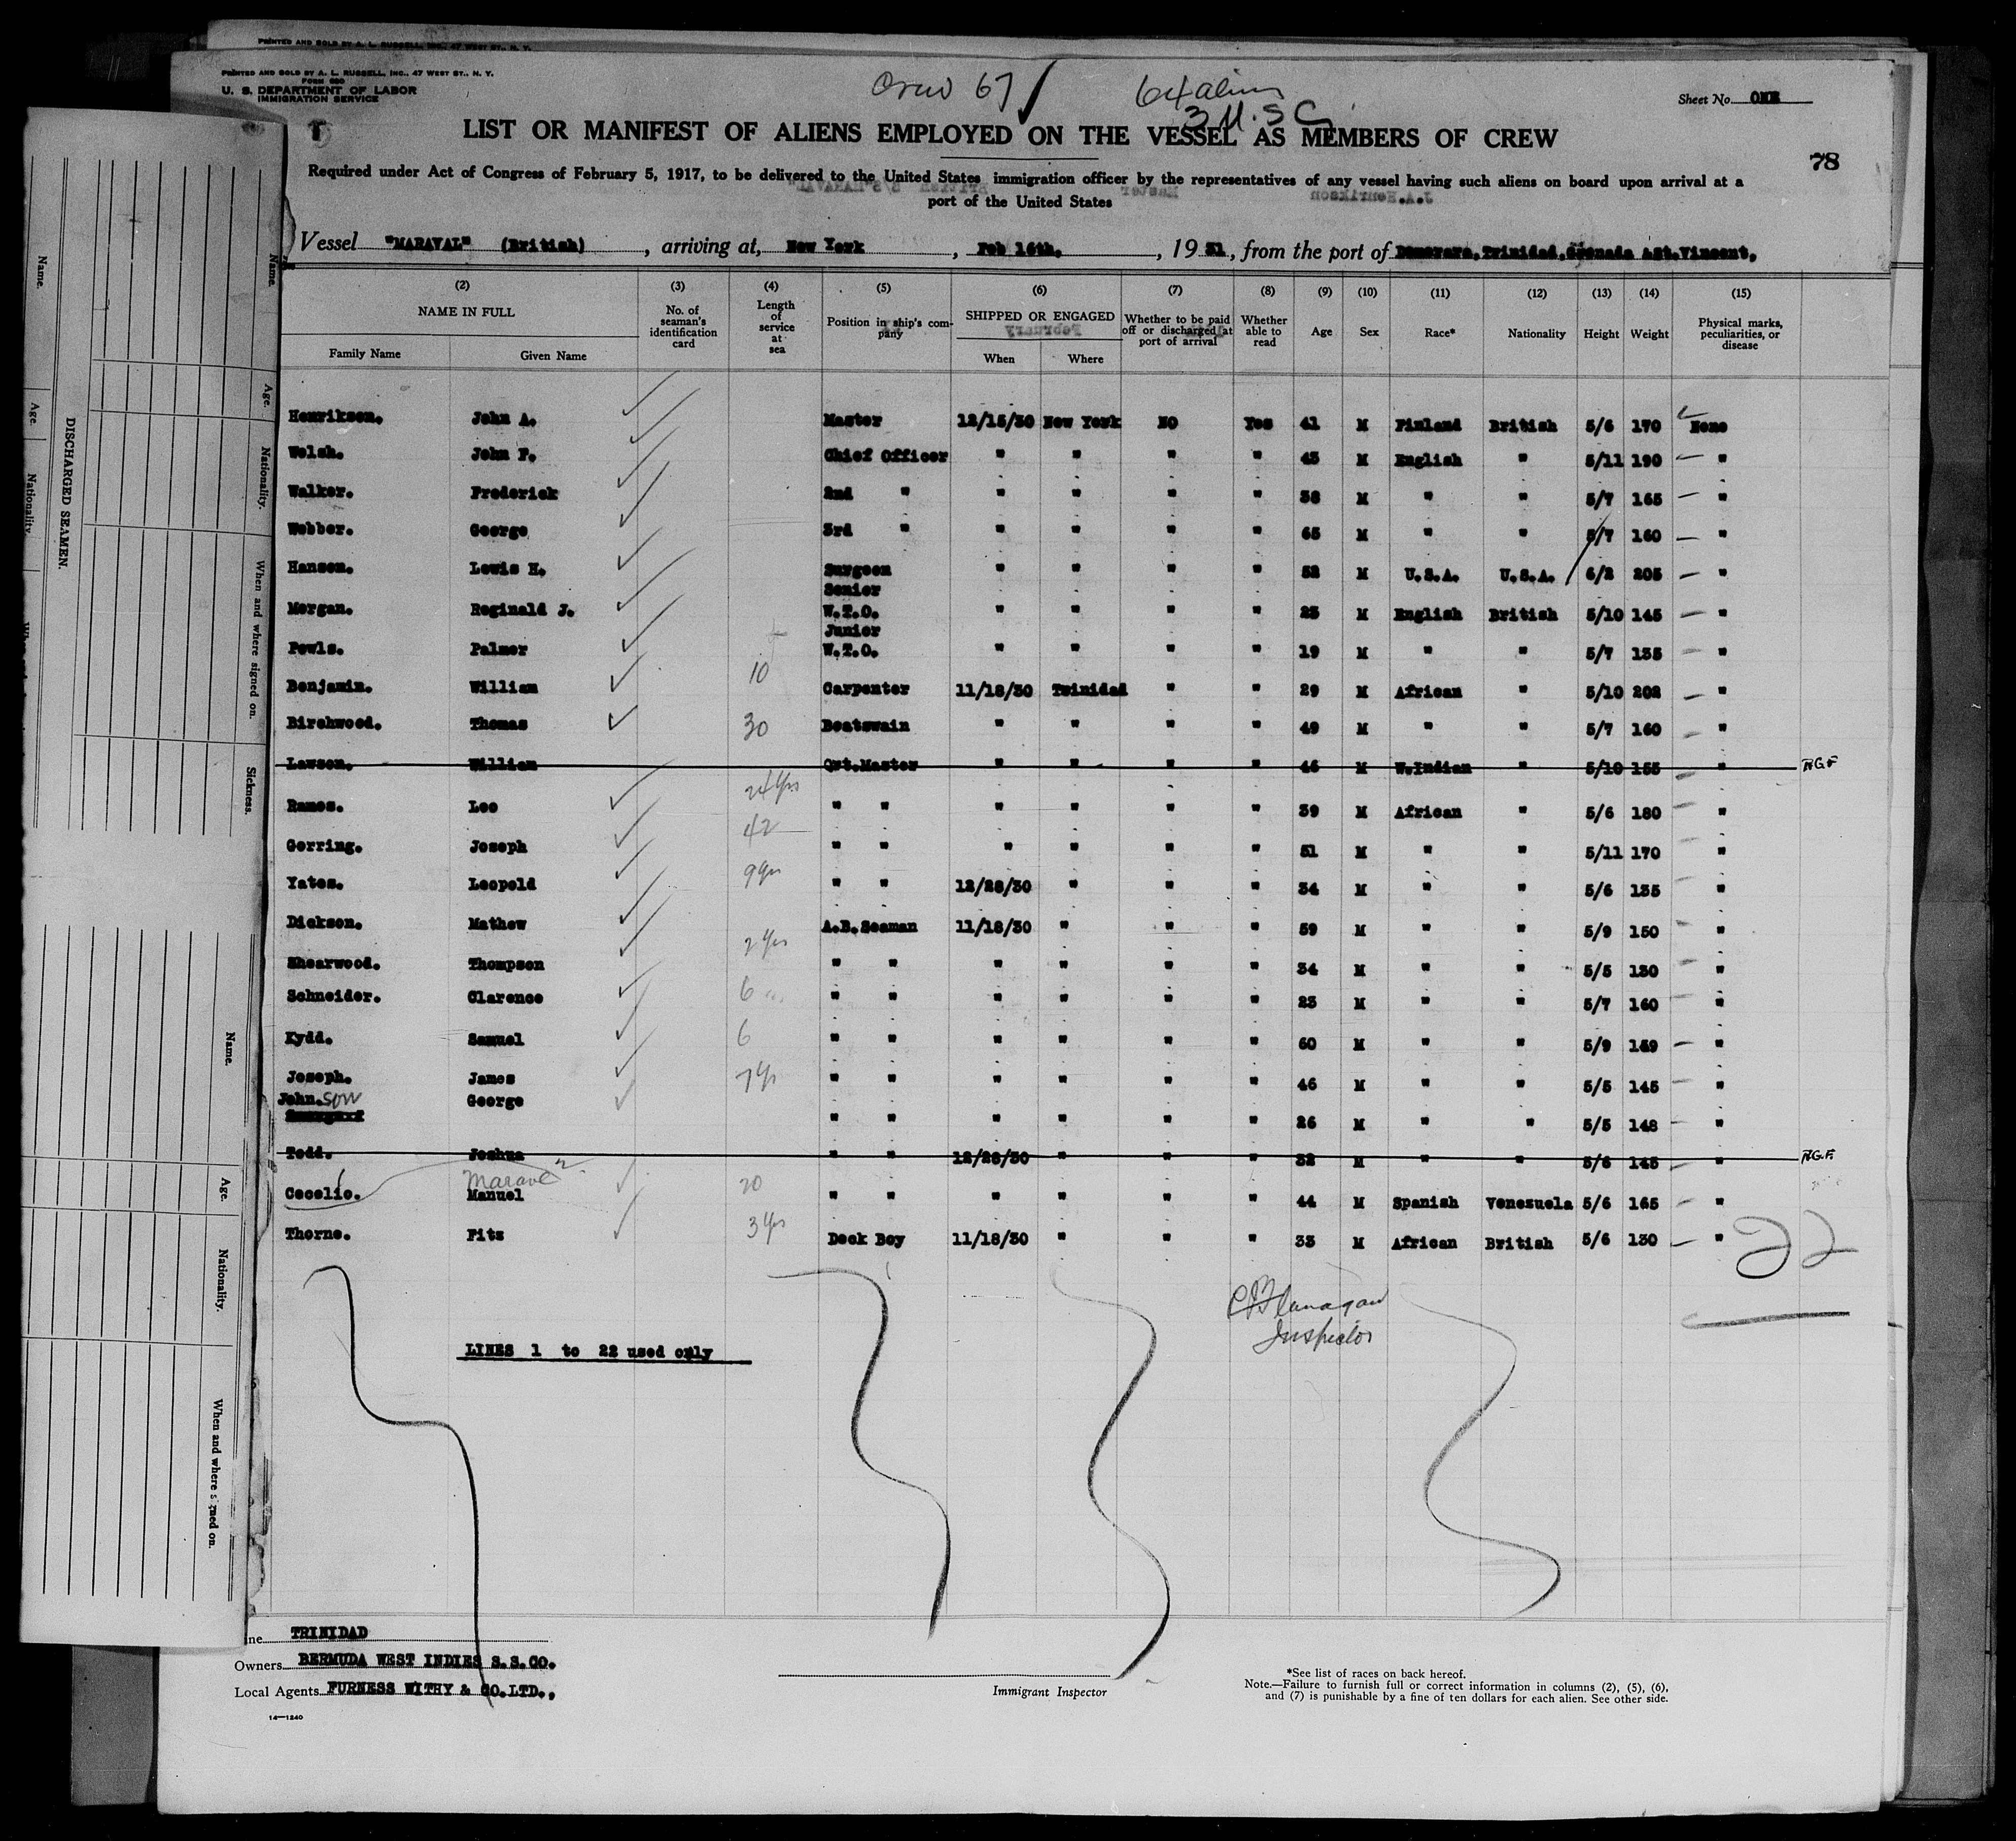 PRINTED AND SOLD BY A. L. RUSSELL, INC., 47 WEST ST., N. Y.
PRINTED AND SOLD BY A. L. RUSSELL, INC., 47 WEST ST., N. Y.
FORM 680
U. S. DEPARTMENT OF LABOR
IMMIGRATION SERVICE
Crew 67
64 aliens
3 U.S C.
Sheet No. ONE
LIST OR MANIFEST OF ALIENS EMPLOYED ON THE VESSEL AS MEMBERS OF CREW
78
Required under Act of Congress of February 5, 1917, to be delivered to the United States immigration officer by the representatives of any vessel having such aliens on board upon arrival at a
port of the United States
Vessel "MARAVAL" (British), arriving at, New York, Feb 16th., 1931, from the port of Demerara,Trinidad,Grenada &St.Vincent,
(2) (3) (4) (5) (6) (7) (8) (9) (10) (11) (12) (13) (14) (15)
NAME IN FULL No. of seaman's identification card Length of service at sea Position in ship's company SHIPPED OR ENGAGED Whether to be paid off or discharged at port of arrival Whether able to read Age Sex Race* Nationality Height Weight Physical marks, peculiarities, or disease
Family Name Given Name When Where
Henrikson. John A. Master 12/15/30 New York NO Yes 41 M Finland British 5/6 170 None
Welsh. John F. Chief Officer " " " " 43 M English " 5/11 190 "
Walker. Frederick 2nd " " " " " 38 M " " 5/7 165 "
Webber. George 3rd " " " " " 65 M " " 5/7 160 "
Hanson. Lewis H. Surgeon " " " " 52 M U.S.A. U.S.A. 6/2 205 "
Morgan. Reginald J. Senior W.T.O. " " " " 23 M English British 5/10 145 "
Powls. Palmer Junior W.T.O. " " " " 19 M " " 5/7 135 "
Benjamin. William 10 Carpenter 11/18/30 Trinidad " " 29 M African " 5/10 202 "
Birchwood. Thomas 30 Boatswain " " " " 49 M " " 5/7 160 "
Lawson. William Qrt.Master " " " " 46 M W.Indian " 5/10 155 "
Ramos. Leo 24 yrs " " " " " " 39 M African " 5/6 180 "
Gerring. Joseph 42 " " " " " " 51 M " " 5/11 170 "
Yates. Leopold 9 yrs " " 12/28/30 " " " 34 M " " 5/6 135 "
Dickson. Mathew A.B.Seaman 11/18/30 " " " 59 M " " 5/9 150 "
Shearwood. Thompson 2 yrs " " " " " " 34 M " " 5/5 130 "
Schneider. Clarence 6 " " " " " " 23 M " " 5/7 160 "
Kydd. Samuel 6 " " " " " " 60 M " " 5/9 149 "
Joseph. James 7 yrs " " " " " " 46 M " " 5/5 145 "
John.son George " " " " " " 26 M " " 5/5 148 "
Todd. Joshua " " 12/28/30 " " " 32 M " " 5/6 145 "
Cecelio. Manuel 20 " " " " " " 44 M Spanish Venezuela 5/6 165 "
Thorne. Fitz 3 yrs Deck Boy 11/18/30 " " " 33 M African British 5/6 130 "
22
Flanagan
Inspector
LINES 1 to 22 used only
TRINIDAD
Owners BERMUDA WEST INDIES S.S.CO.
Local Agents FURNESS WITHY & CO.LTD.,
14—1240
Immigrant Inspector
*See list of races on back hereof.
Note.—Failure to furnish full or correct information in columns (2), (5), (6),
and (7) is punishable by a fine of ten dollars for each alien. See other side.
DISCHARGED SEAMEN.
Name. Age. Nationality. When and where signed on. Sickness.
Name. Age. Nationality.
Name. Age. Nationality. When and where signed on.